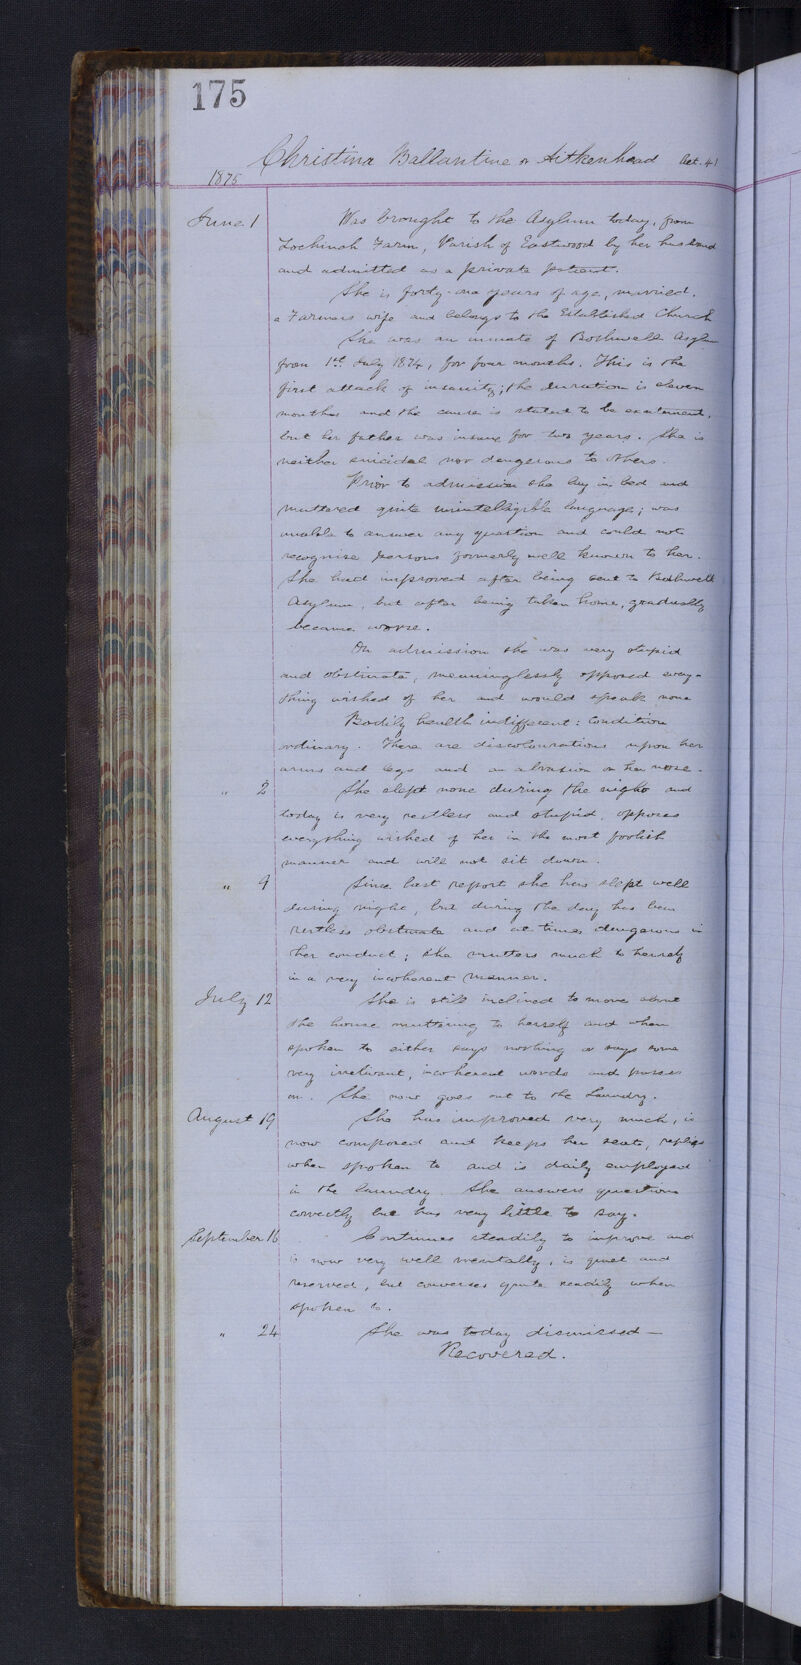 175
Christina Ballantine or Aitkenhead Aet. 41
1875
June 1 Was brought to the Asylum today, from
Lochinch Farm, Parish of Eastwood by her husband
and admitted as a private patient.
She is forty-one years of age, married,
a Farmers wife and belongs to the Established Church
She was an inmate of Bothwell Asylum
from 1st July 1874, for four months. This is the
first attack of insanity; the duration is eleven
months and the cause is stated to be excitement,
but her father was insane for two years. She is
neither suicidal nor dangerous to others.
Prior to admission she lay in bed and
muttered quite unintelligible language; was
unable to answer any question and could not
recognise persons formerly well known to her.
She had improved after being sent to Bothwell
Asylum, but after being taken home, gradually
became worse.
On admission she was very stupid
and obstinate, meaninglessly opposed every-
thing wished of her and would speak none
Bodily health indifferent: Condition
ordinary. There are discolourations upon her
arms and legs and an abrasion on her nose.
" 2 She slept none during the night and
today is very restless and stupid, opposes
everything wished of her in the most foolish
manner and will not sit down.
" 9 Since last report she has slept well
during night, but during the day has been
restless obstinate and at times dangerous in
her conduct; she mutters much to herself
in a very incoherent manner.
July 12 She is still inclined to move about
the house muttering to herself and when
spoken to either says nothing or says some
very irrelevant, incoherent words and passes
on. She now goes out to the Laundry.
August 19 She has improved very much, is
now composed and keeps her seat, replies
when spoken to and is daily employed
in the laundry. She answers questions
correctly but has very little to say.
September 16 Continues steadily to improve and
is now very well mentally, is quiet and
reserved, but converses quite readily when
spoken to.
" 24 She was today dismissed—
Recovered.